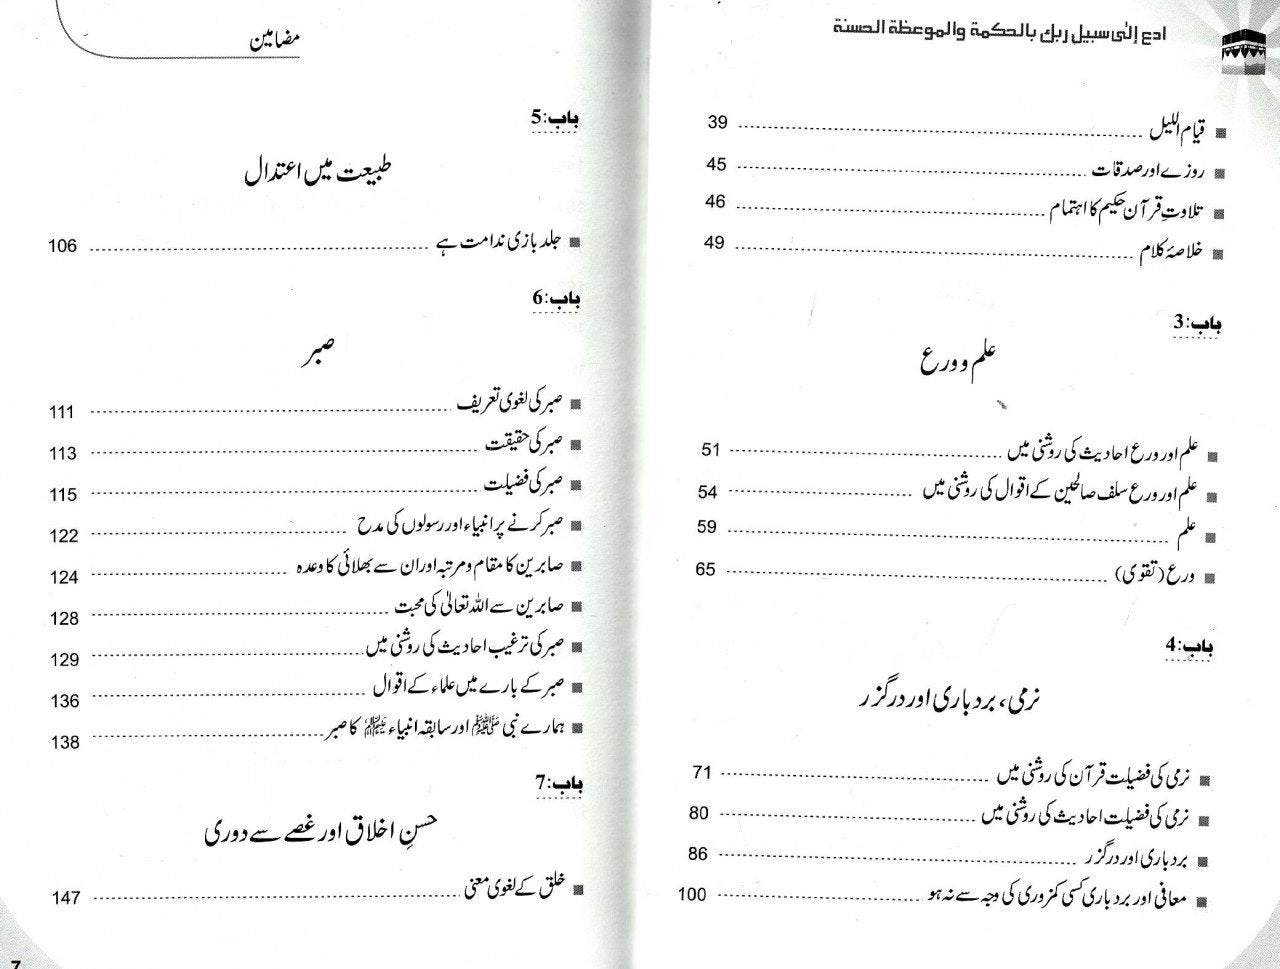 ادع إلى سبيل ربك بالحكمة والموعظة الحسنة
قیام اللیل 39
روزے اور صدقات 45
تلاوتِ قرآن حکیم کا اہتمام 46
خلاصۂ کلام 49
باب:3
علم و ورع
علم اور ورع احادیث کی روشنی میں 51
علم اور ورع سلف صالحین کے اقوال کی روشنی میں 54
علم 59
ورع (تقوی) 65
باب:4
نرمی، بردباری اور درگزر
نرمی کی فضیلت قرآن کی روشنی میں 71
نرمی کی فضیلت احادیث کی روشنی میں 80
بردباری اور درگزر 86
معافی اور بردباری کسی کمزوری کی وجہ سے نہ ہو 100
مضامین
باب:5
طبیعت میں اعتدال
جلد بازی ندامت ہے 106
باب:6
صبر
صبر کی لغوی تعریف 111
صبر کی حقیقت 113
صبر کی فضیلت 115
صبر کرنے پر انبیاء اور رسولوں کی مدح 122
صابرین کا مقام و مرتبہ اور ان سے بھلائی کا وعدہ 124
صابرین سے اللہ تعالیٰ کی محبت 128
صبر کی ترغیب احادیث کی روشنی میں 129
صبر کے بارے میں علماء کے اقوال 136
ہمارے نبی ﷺ اور سابقہ انبیاء کا صبر 138
باب:7
حسنِ اخلاق اور غصے سے دوری
خلق کے لغوی معنی 147
7